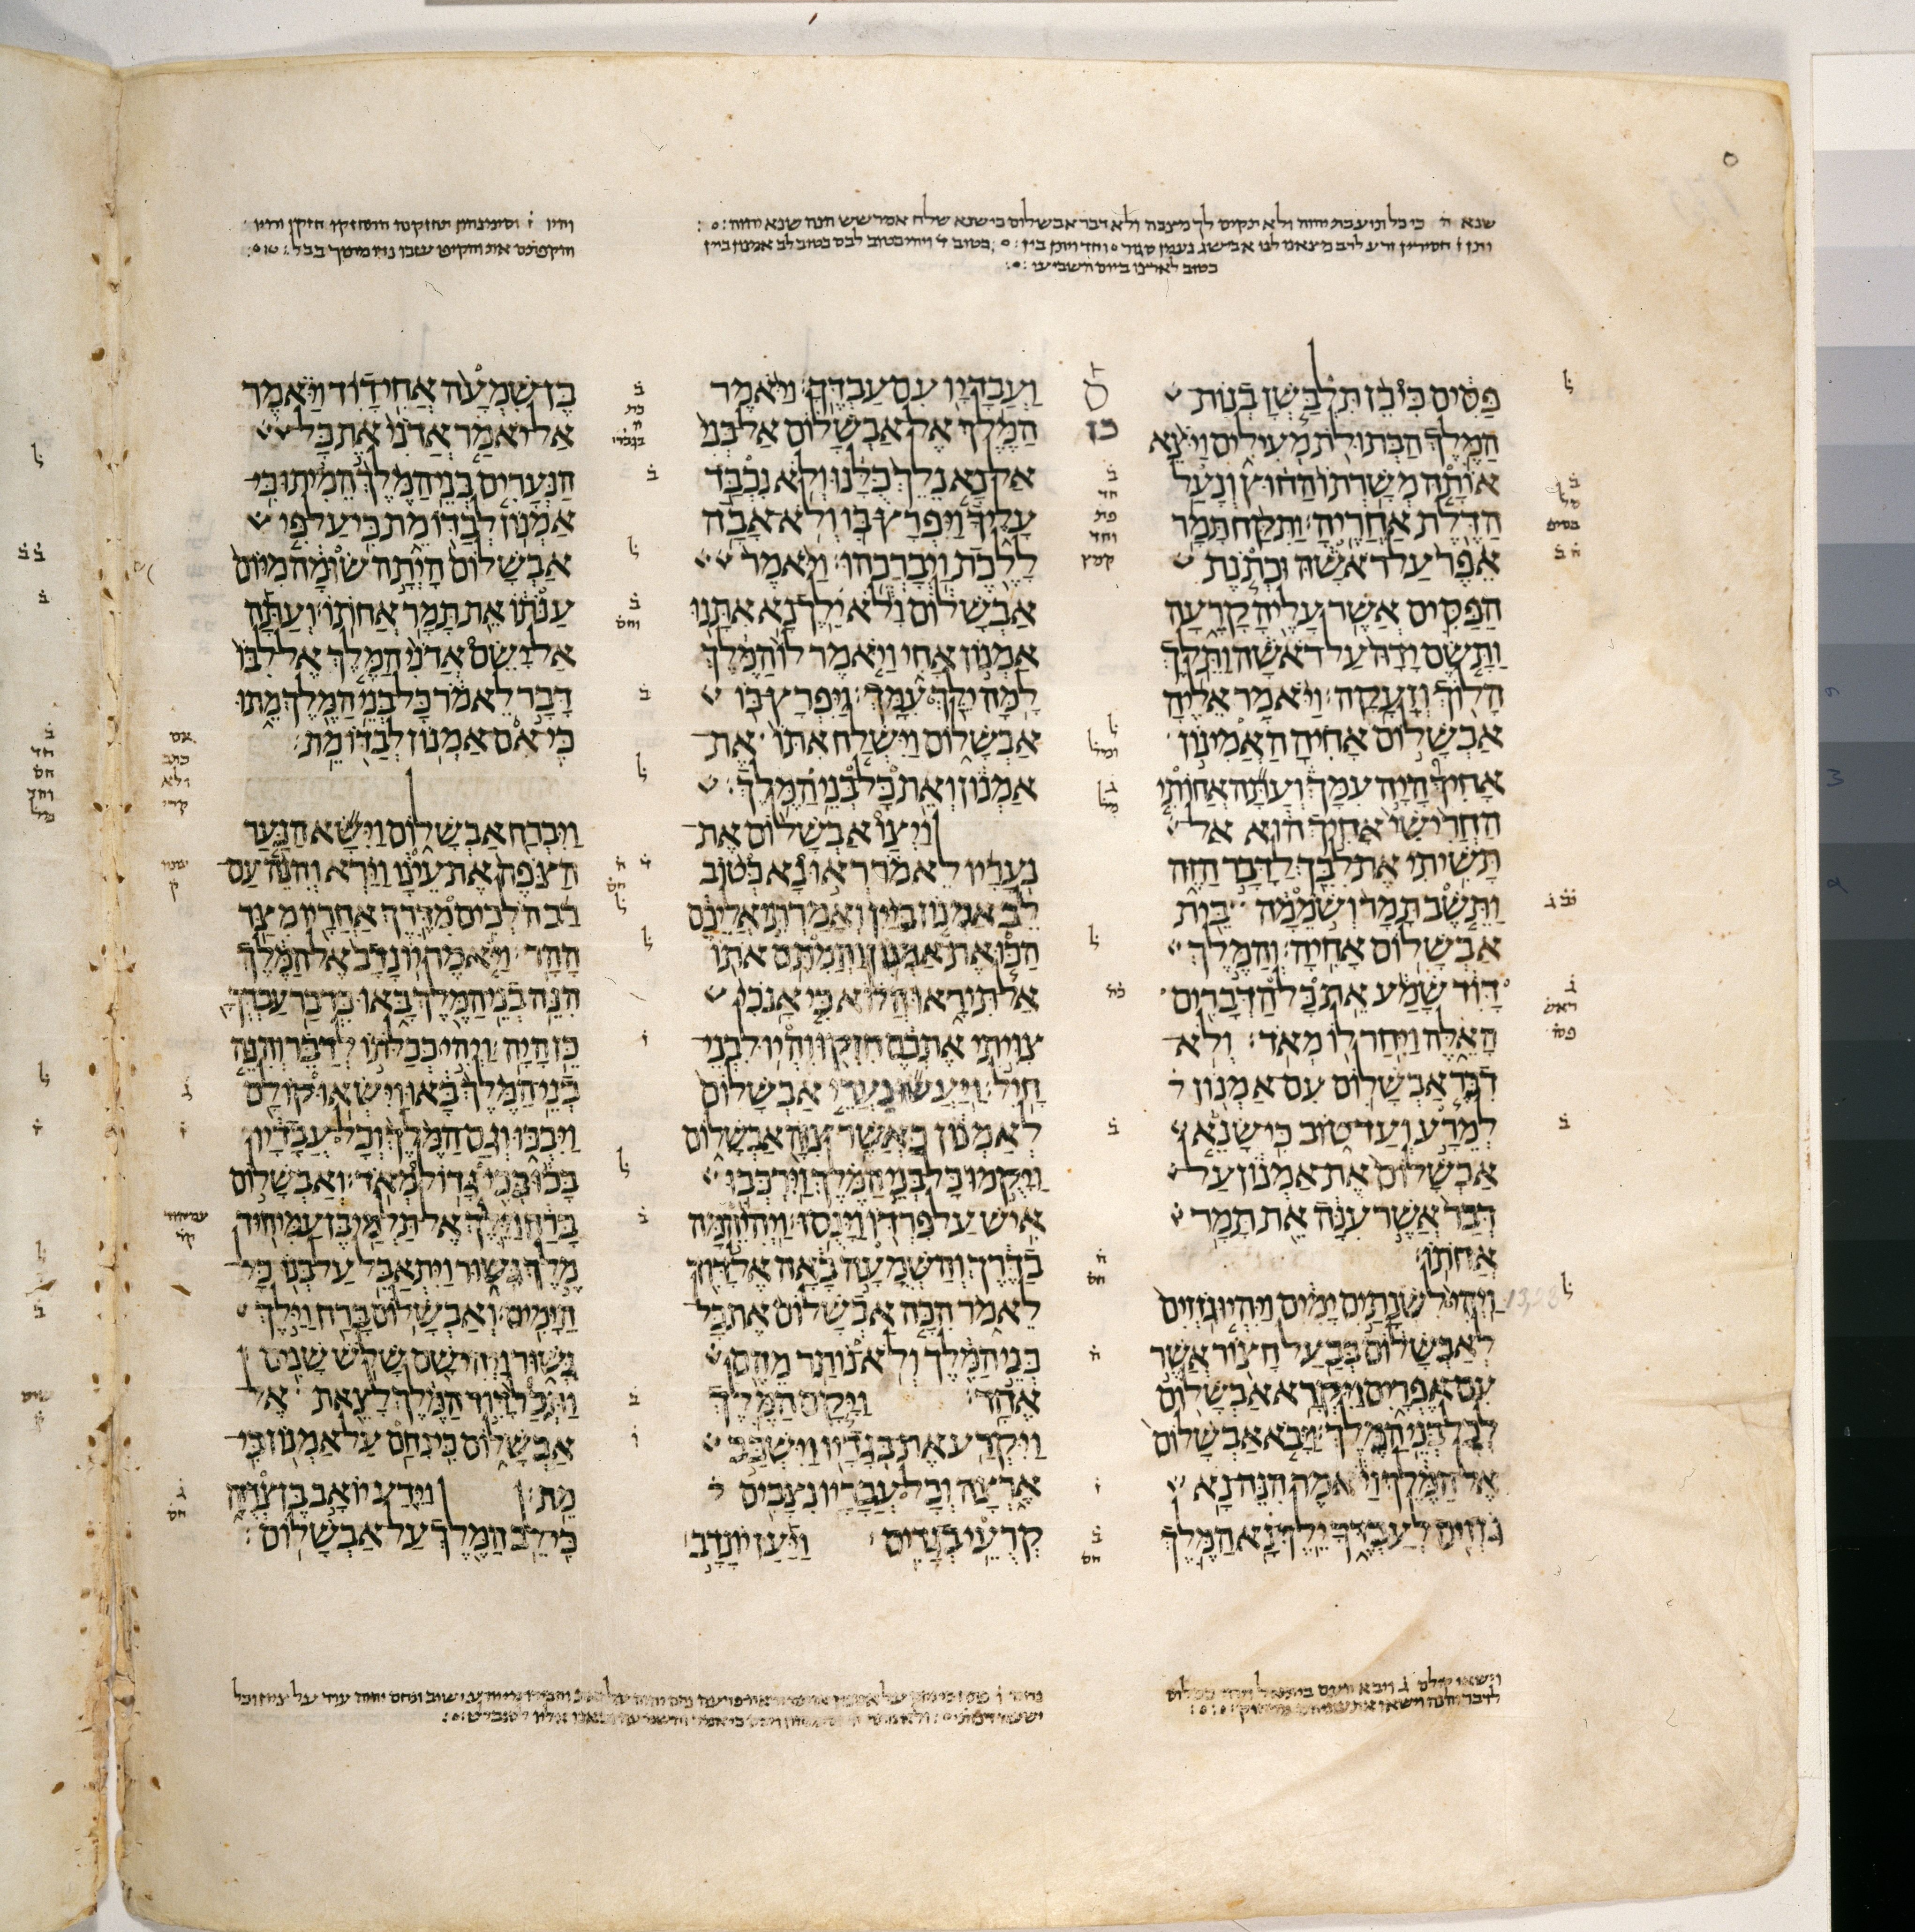 שנא ה כי כל תועבת יהוה ולא תקים לך מצבה ולא דבר אבשלום כי שנא שלח אמר שש הנה שנא יהוה
כטוב לארנו ביום השביעי
פסים כי כן תלבשן בנות
המלך הבתולת מעילים ויצא
אותה משרתו החוץ ונעל
הדלת אחריה ותקח תמר
אפר על ראשה וכתנת
הפסים אשר עליה קרעה
ותשם ידה על ראשה ותלך
הלוך וזעקה ויאמר אליה
אבשלום אחיה האמינון
אחיך היה עמך ועתה אחותי
החרישי אחיך הוא אל
תשיתי את לבך לדבר הזה
ותשב תמר ושממה בית
אבשלום אחיה והמלך
דוד שמע את כל הדברים
האלה ויחר לו מאד ולא
דבר אבשלום עם אמנון
למרע ועד טוב כי שנא
אבשלום את אמנון על
דבר אשר ענה את תמר
אחתו
ויהי לשנתים ימים ויהיו גזזים
לאבשלום בבעל חצור אשר
עם אפרים ויקרא אבשלום
לכל בני המלך ויבא אבשלום
אל המלך ויאמר הנה נא
גזזים לעבדך ילך נא המלך
ועבדיו עם עבדך ויאמר
המלך אל אבשלום אל בני
אל נא נלך כלנו ולא נכבד
עליך ויפרץ בו ולא אבה
ללכת ויברכהו ויאמר
אבשלום ולא ילך נא אתנו
אמנון אחי ויאמר לו המלך
למה ילך עמך ויפרץ בו
אבשלום וישלח אתו את
אמנון ואת כל בני המלך
ויצו אבשלום את
נעריו לאמר ראו נא כטוב
לב אמנון ביין ואמרתי אליכם
הכו את אמנון והמתם אתו
אל תיראו הלוא כי אנכי
צויתי אתכם חזקו והיו לבני
חיל ויעשו נערי אבשלום
לאמנון כאשר צוה אבשלום
ויקמו כל בני המלך וירכבו
איש על פרדו וינסו ויהי המה
בדרך והשמעה באה אל דוד
לאמר הכה אבשלום את כל
בני המלך ולא נותר מהם
אחד ויקם המלך
ויקרע את בגדיו וישכב
ארצה וכל עבדיו נצבים
קרעי בגדים ויען יונדב
בן שמעה אחי דוד ויאמר
אל יאמר אדני את כל
הנערים בני המלך המיתו כי
אמנון לבדו מת כי על פי
אבשלום היתה שומה מיום
ענתו את תמר אחתו ועתה
אל ישם אדני המלך אל לבו
דבר לאמר כל בני המלך מתו
כי אם אמנון לבדו מת
ויברח אבשלום וישא הנער
הצפה את עינו וירא והנה עם
רב הלכים מדרך אחריו מצד
ההר ויאמר יונדב אל המלך
הנה בני המלך באו כדבר עבדך
כן היה ויהי ככלתו לדבר והנה
בני המלך באו וישאו קולם
ויבכו וגם המלך וכל עבדיו
בכו בכי גדול מאד ואבשלום
ברח וילך אל תלמי בן עמיחור
מלך גשור ויתאבל על בנו כל
הימים ואבשלום ברח וילך
גשור ויהי שם שלש שנים
ותכל דוד המלך לצאת אל
אבשלום כי נחם על אמנון כי
מת וידע יואב בן צריה
כי לב המלך על אבשלום